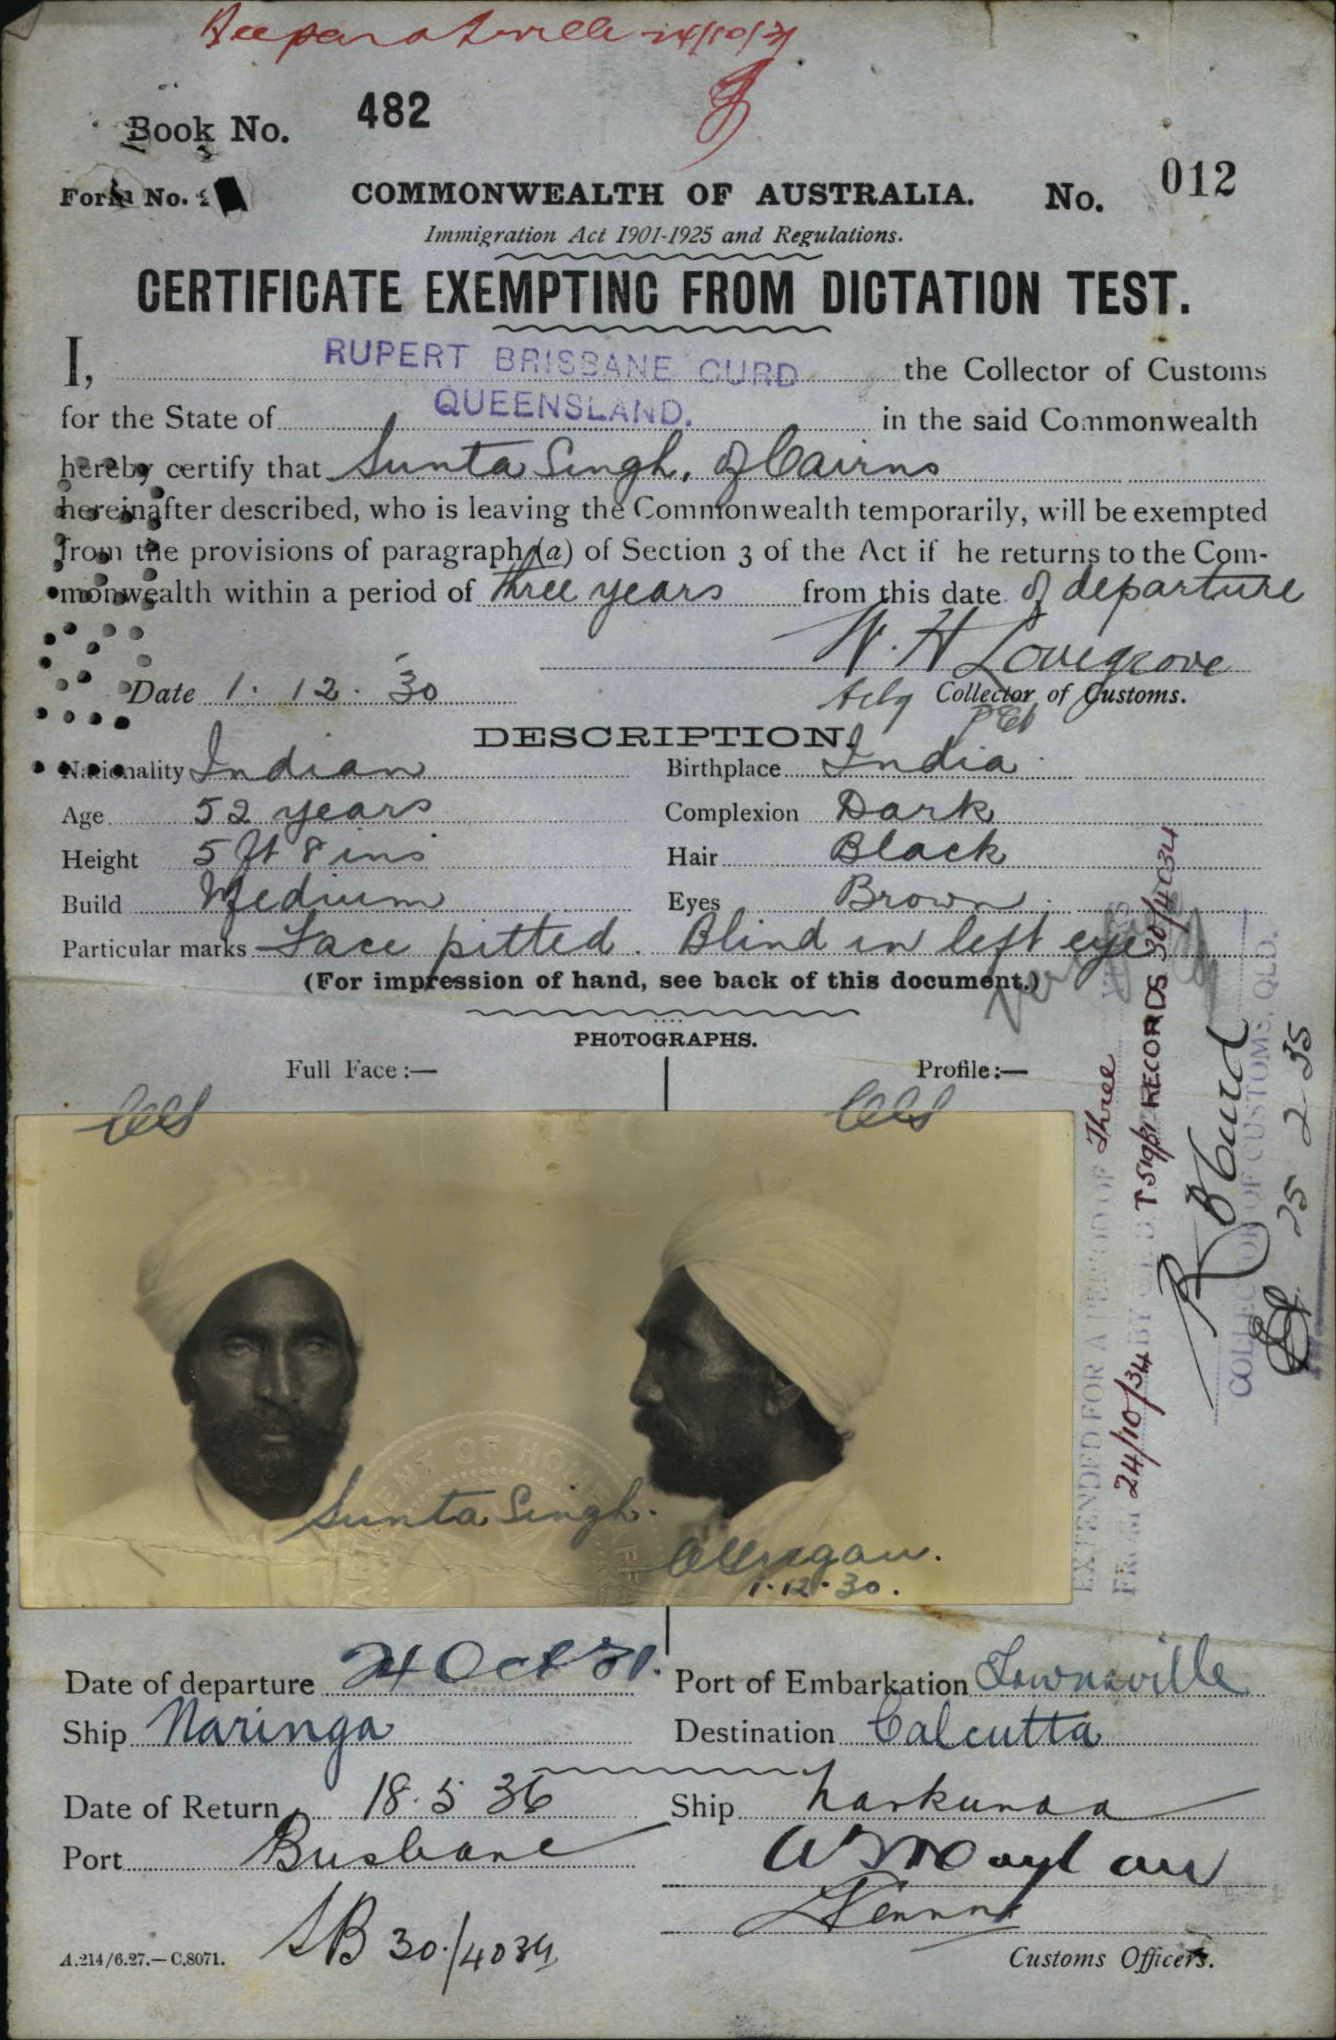 24/10/31
Book No. 482
Form No.
COMMONWEALTH OF AUSTRALIA. No. 012
Immigration Act 1901-1925 and Regulations.
CERTIFICATE EXEMPTING FROM DICTATION TEST.
I, RUPERT BRISBANE CURD the Collector of Customs
for the State of QUEENSLAND. in the said Commonwealth
hereby certify that Sunta Singh, of Cairns
hereinafter described, who is leaving the Commonwealth temporarily, will be exempted
from the provisions of paragraph (a) of Section 3 of the Act if he returns to the Com-
monwealth within a period of three years from this date of departure
W. H Lovegrove
Date 1. 12. 30 Actg Collector of Customs.
DESCRIPTION.
Nationality Indian Birthplace India
Age 52 years Complexion Dark
Height 5 ft 8 ins Hair Black
Build Medium Eyes Brown
Particular marks Face pitted. Blind in left eye
(For impression of hand, see back of this document.)
PHOTOGRAPHS.
Full Face:— Profile:—
Sunta Singh.
1.12.30.
EXTENDED FOR A PERIOD OF Three YEARS
FROM 24/10/34 BY RECORDS 30/4034
R B Curd
COLLECTOR OF CUSTOMS, QLD.
25 2 35
Date of departure 24 Oct 31. Port of Embarkation Townsville
Ship Naringa Destination Calcutta
Date of Return 18.5 36 Ship Narkunda
Port Brisbane
SB 30/4034
A.214/6.27.—C.8071. Customs Officers.